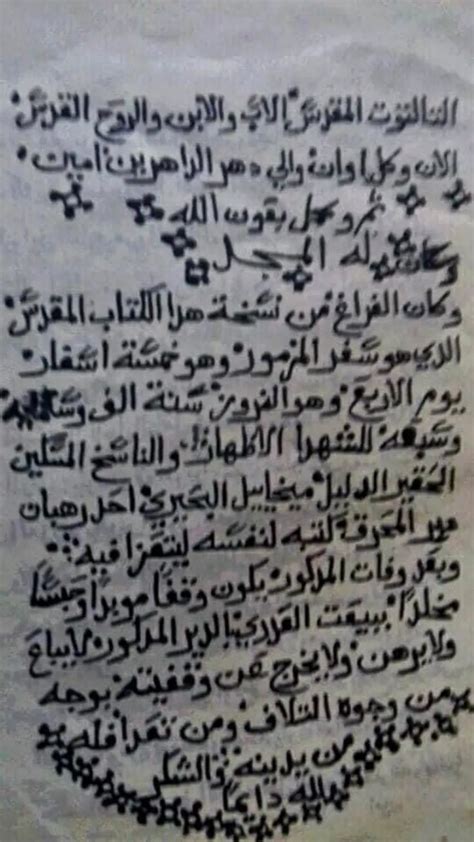 التالتوت المقدس الاب والابن والروح القدس
الان وكل اوان والي دهر الداهرين امين
تم وكمل بعون الله
وكان له المجد
وكان الفراغ من نسخة هدا الكتاب المقدس
الدي هو سفر المزمور وهو خمسة اسفار
يوم الاربع وهو النروز سنة الف و
وسبعه للشهدا الاطهار والناسخ المسكين
الحقير الدليل ميخاييل البحيري احد رهبان
دير المحرقة كتبه لنفسه ليتعزا فيه
وبعد وفات المدكور يكون وقفا موبدا وحبسا
مخلدا ببيعت العدري بالدير المدكور لا يباع
ولا يرهن ولا يخرج عن وقفيته بوجه
من وجوه التلاف ومن تعدا فله
من يدينه والشكر
لله دايما